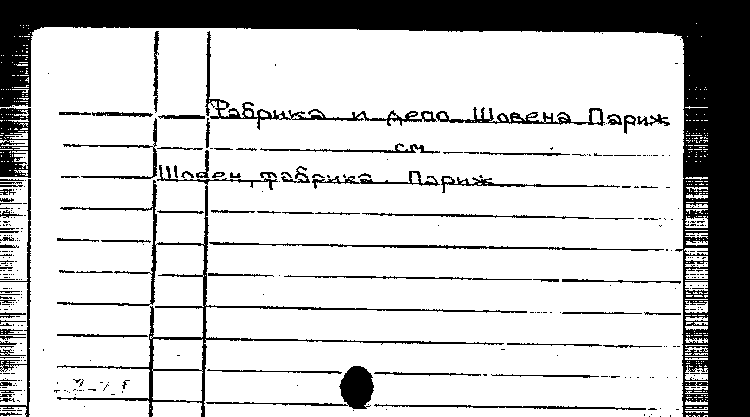 Фабрика и депо Шовена Париж
см
Шовен, фабрика. Париж